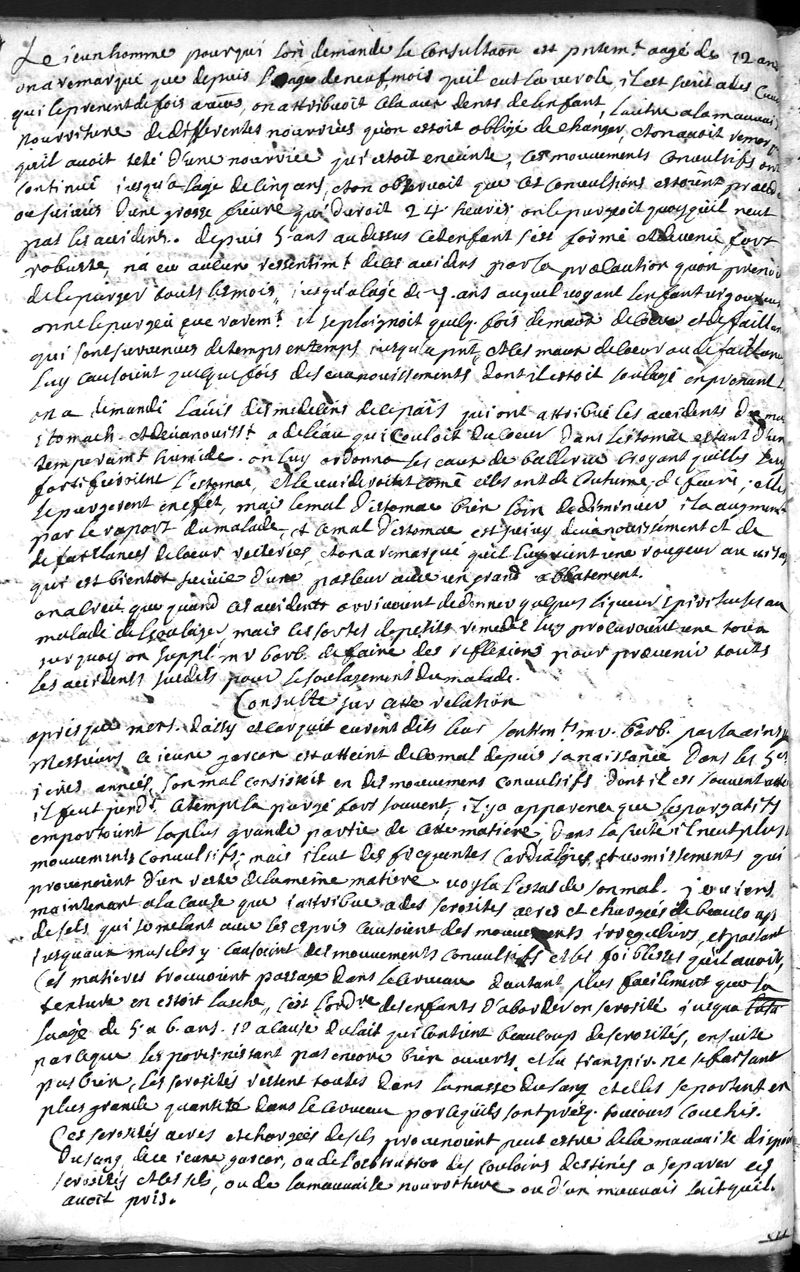 Le ieun homme pour qui lon demande le Consultaon est pntem.t aagé de 12 ans
on a remarqué que depuis l'aage de neuf mois quil eut la verole, il est suiet a des
qui le prenent de fois a autre, on attribuoit cela aux dents de lenfant, lautre a la mauvais
nourriture de differentes nourrices quon estoit obligé de changer, et on avoit remar
quil avoit teté d'une nourrice qui estoit enceinte, ces mouvements convulsifs ont
continué iusqu'a lage de cinq ans, et on observoit que ces convulsions estoient præcede
ou suivies d'une grosse fievre qui duroit 24 heures, on le purgeoit quoy quil neut
pas les accidents. depuis 5 ans au dessus cet enfant s'est formé et devenu fort
robuste, n'a eu aucun ressentim.t de ces accidens par la præcaution quon prenoit
de le purger touts les mois, iusqu'a lage de 9 ans auquel voyant lenfant vigoureux
on ne le purgea que rarem.t il se plaignoit quelq. fois de maux de coeur et de faillan
qui sont survenues de temps en temps iusqu'a pnt, et les maux de coeur ou defaillan
luy causoient quelque fois des evanouissements dont il estoit soulagé en prenant
on a demandé l'avis des medecins de ce païs qui ont attribué les accidents de ma
stomach et devanouiss.t a de l'eau qui couloit du coeur dans lestomac estant d'un
temperam.t humide. on luy ordonna les eaux de balleruc croyant quelles luy
fortifieroient l'estomac, et le wuideroient come elles ont de coutume de faire, elle
le purgerent en effet, mais le mal d'estomac bien loin de diminuer il a augment
par le raport du malade, et le mal d'estomac est suivy devanouissement et de
defaillances de coeur reiterées, et on a remarqué quil luy vient une rougeur au visage
qui est bientôt suivie d'une pasleur avec un grand abbatement.
on a creu que quand ces accidents arrivoient de donner quelques liqueurs spiritueuses au
malade de le soulager, mais ces sortes de petits remedes luy procuroient une toux
sur quoy on suppl. mr barb. de faire des reflexions pour prævenir touts
les accidents susdits pour le soulagement du malade.
Consulte sur cette relation
apres que mess. daisy et carquit eurent dits leur sentim.ts mr. barb. parla ainsy
Messieurs ce ieune garcon est atteint de ce mal depuis sa naissance dans les 5
ieres années, son mal consistoit en des mouvement convulsifs dont il est souvent
il feut pend.t ce temps la purgé fort souvent, il y a apparence que les purgatifs
emportoient la plus grande partie de cette matiere, dans la suite il neut plus
mouvements convulsifs, mais il eut des frequentes cardialgies, et vomissements qui
provenoient d'un reste de la meme matiere voyla l'estat de son mal. je viens
maintenant a la cause que iattribue a des serosites acres et chargées de beaucoup
de sels, qui se melant avec les espris causoient des mouvements irreguliers, et passant
iusqu'aux muscles y causoient des mouvements convulsifs et les foiblesses quil avoit,
Ces matieres trouvoient passage dans le cerveau dautant plus facilement que la
texture en estoit lasche, c'est l'ordre des enfants d'abonder en serosité iusqua
laage de 5 a 6 ans. 1o a cause du lait qui contient beaucoup de serosités, en suite
parceque les pores nistant pas encore bien ouverts et la transpir. ne se faisant
pas bien, les serosités restent toutes dans la masse du sang et elles se portent en
plus grande quantité dans le cerveau parcequils sont presq. toujours couchés.
Ces serosités acres et chargées de sels provenoient peut estre de la mauvaise dispo
du sang de ce ieune garcon, ou de l'obstruction des couloirs destinés a separer ces
serosités et les sels, ou de la mauvaise nourriture ou d'un mauvais lait quil
avoit pris.